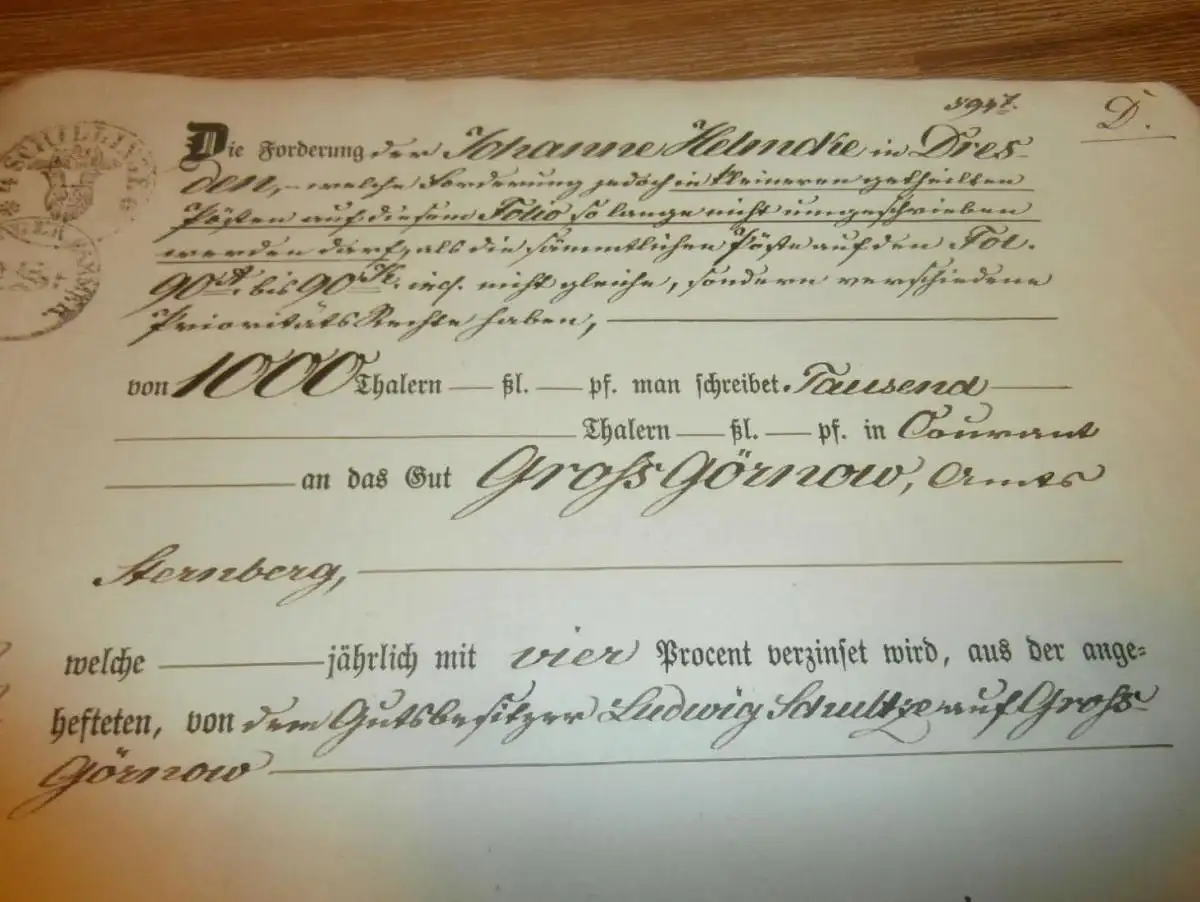 594⅞.
D.
* 4 SCHILLINGE *
Die Forderung der Johanne Helmcke in Dres-
den, - welche Forderung jedoch in kleineren getheilten
Pösten auf diesem Folio so lange nicht umgeschrieben
werden darf, als die sämmtlichen Pöste auf den Fol.
90A. bis 90K. incl. nicht gleiche, sondern verschiedene
Prioritäts Rechte haben,
von 1000 Thalern — ßl. — pf. man schreibet Tausend
Thalern — ßl. — pf. in Courant
an das Gut Gross Görnow, Amts
Sternberg,
welche jährlich mit vier Procent verzinset wird, aus der ange-
hefteten, von dem Gutsbesitzer Ludwig Schultze auf Gross-
Görnow